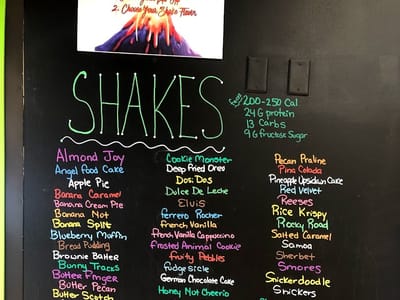 2. Choose Your Shake Flavor
SHAKES
200-250 Cal
24 G protein
13 Carbs
9 G fructose Sugar
Almond Joy
Angel Food Cake
Apple Pie
Banana Caramel
Banana Cream Pie
Banana Not
Banana Split
Blueberry Muffin
Bread Pudding
Brownie Batter
Bunny Tracks
Butter Finger
Butter Pecan
Butter Scotch
Cookie Monster
Deep Fried Oreo
Dos: Dos
Dulce De Leche
Elvis
Ferrero Rocher
french Vanilla
french Vanilla Cappuccino
Frosted Animal Cookie
fruity Pebbles
fudgesicle
German Chocolate Cake
Honey Not Cheerio
Pecan Praline
Pina Colada
Pineapple Upsidian Cake
Red Velvet
Reeses
Rice Krispy
Rocky Road
Salted Caramel
Samoa
Sherbet
Smores
Snickerdoodle
Snickers